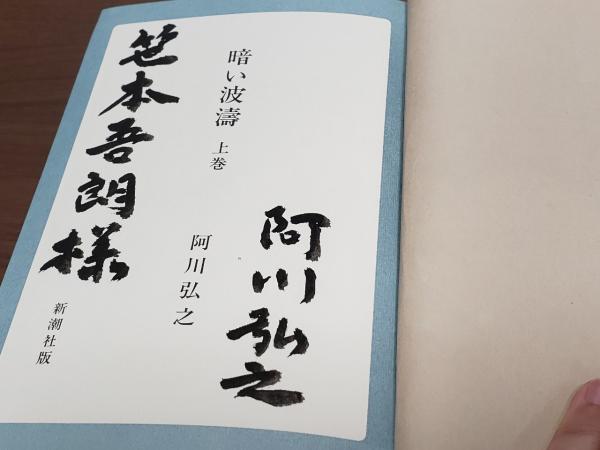 阿川弘之
暗い波濤 上巻
阿川弘之
笹本吾朗様
新潮社版